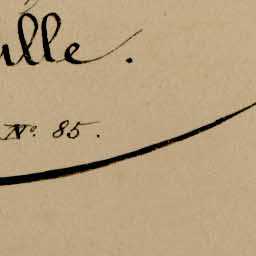 ulle.
Nº. 85.